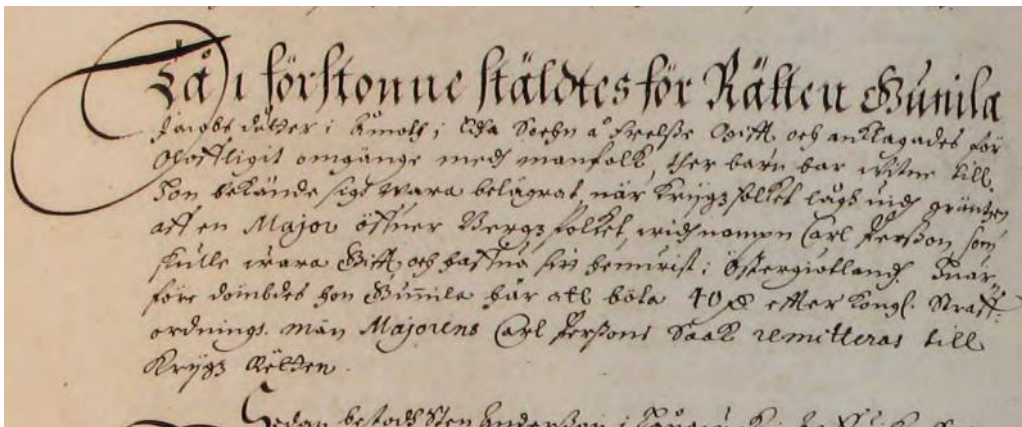 Tå i förstonne ställdtes för Rätten Gunila
dåtter i Åmoth i Eda Sochn å Frelsse Ogift och anklagades för
Othuftligit omgänge medh manfolk, ther barn bar witne till.
Hon bekände sigh wara belägrat, när Krijgzfolket lågh widh gräntzen
aff en Major öffuer Bergzfolket, widh nampn Carl Perßon, som
skulle wara Gift och haffua sin hemwist i Östergiötlandh. Huar
före dömbdes hon Gunnila här att böta 40 efter Kongl. Straff
ordning. män Majorens Carl Perßons Saak remitteras till
Krijgz Rätten.
Sedan bestodh Sten Anderßon i